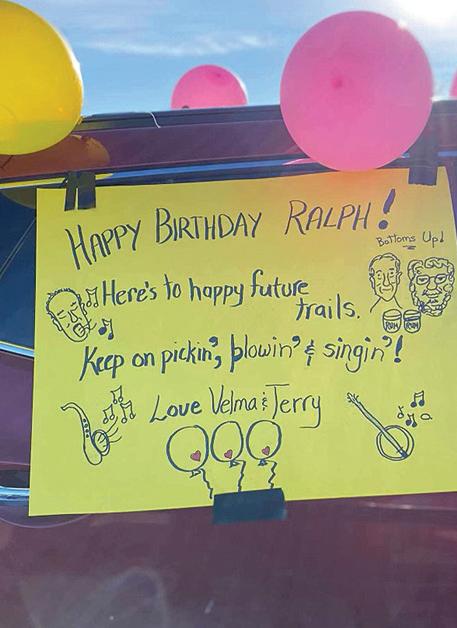 HAPPY BIRTHDAY RALPH!
Bottoms Up!
Here's to happy future
trails.
RUM RUM
Keep on pickin', blowin' & singin'!
Love Velma & Terry